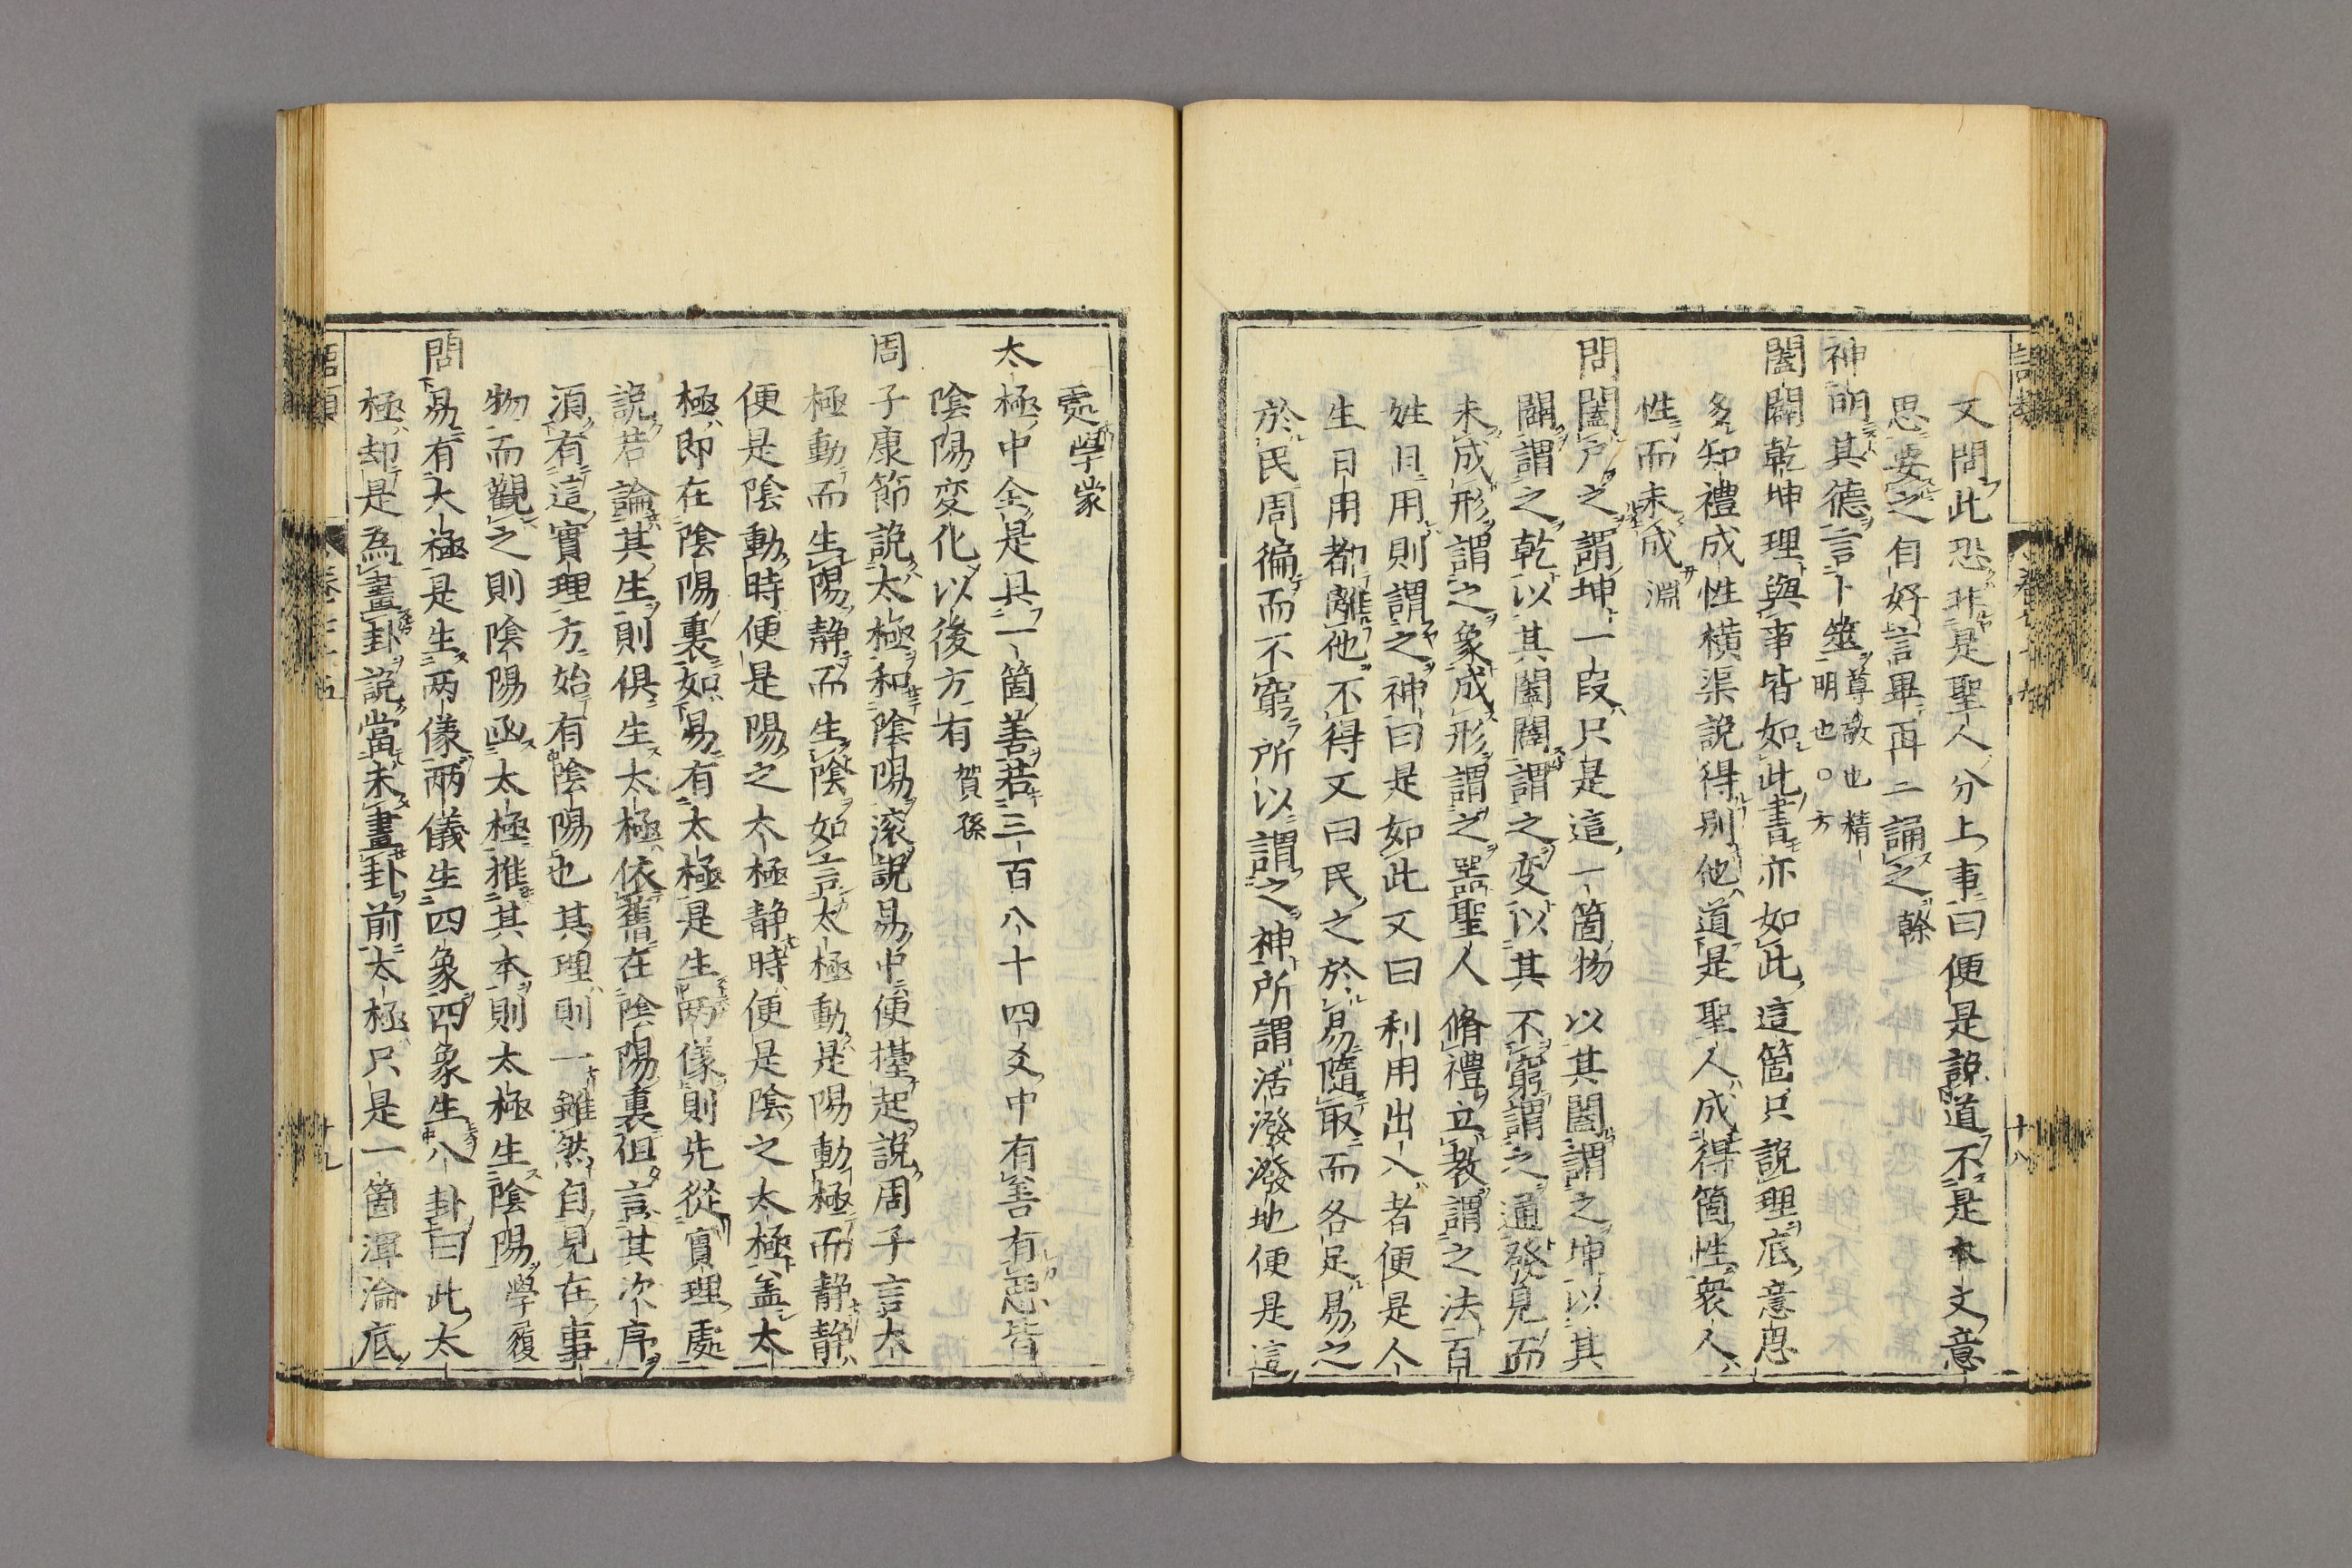 文問此恐非是聖人分上事曰便是說道不是本文意
思要之自好言畢再二誦之榦
神明其德言卜筮尊敬也精
明也○方
闔闢乾坤理與事皆如此書亦如此這箇只說理底意思
多知禮成性橫渠說得別他道是聖人成得箇性衆人
性而未成淵
問闔戶之謂坤一段只是這一箇物以其闔謂之坤以其
闢謂之乾以其闔闢謂之変以其不窮謂之通發見而
未成形謂之象成形謂之器聖人脩禮立教謂之法百
姓日用則謂之神曰是如此文曰利用出入者便是人
生日用都離他不得文曰民之於易隨取而各足易之
於民周徧而不窮所以謂之神所謂活潑潑地便是這
處學蒙
太極中全是具一箇善若三百八十四爻中有善有惡皆
陰陽変化以後方有賀孫
周子康節說太極和陰陽滚說易中便擡起說周子言太
極動而生陽静而生陰如言太極動是陽動極而静静
便是陰動時便是陽之太極静時便是陰之太極盖太
極即在陰陽裏如易有太極是生两儀則先從實理處
說若論其生則俱生太極依舊在陰陽裏但言其次序
湏有這實理方始有陰陽也其理則一雖然自見在事
物而觀之則陰陽凾太極推其本則太極生陰陽學履
問易有太極是生两儀两儀生四象四象生八卦曰此太
極却是為畫卦說當未畫卦前太極只是一箇渾淪底
語類
十八